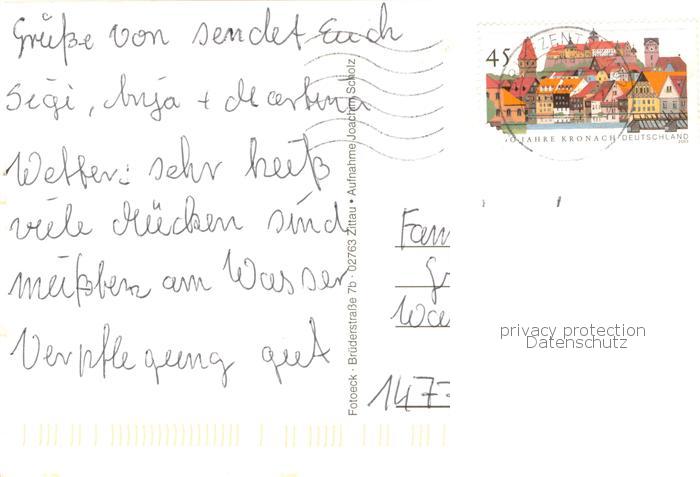 Grüße von sendet Euch
Sigi, Anja + Martina
Wetter: sehr heiß
viele Mücken sind
meißtens am Wasser
Verpflegung gut
Fotoeck · Brüderstraße 7b · 02763 Zittau • Aufnahme Joachim Scholz
45
JAHRE KRONACH DEUTSCHLAND
Fam
147
privacy protection
Datenschutz